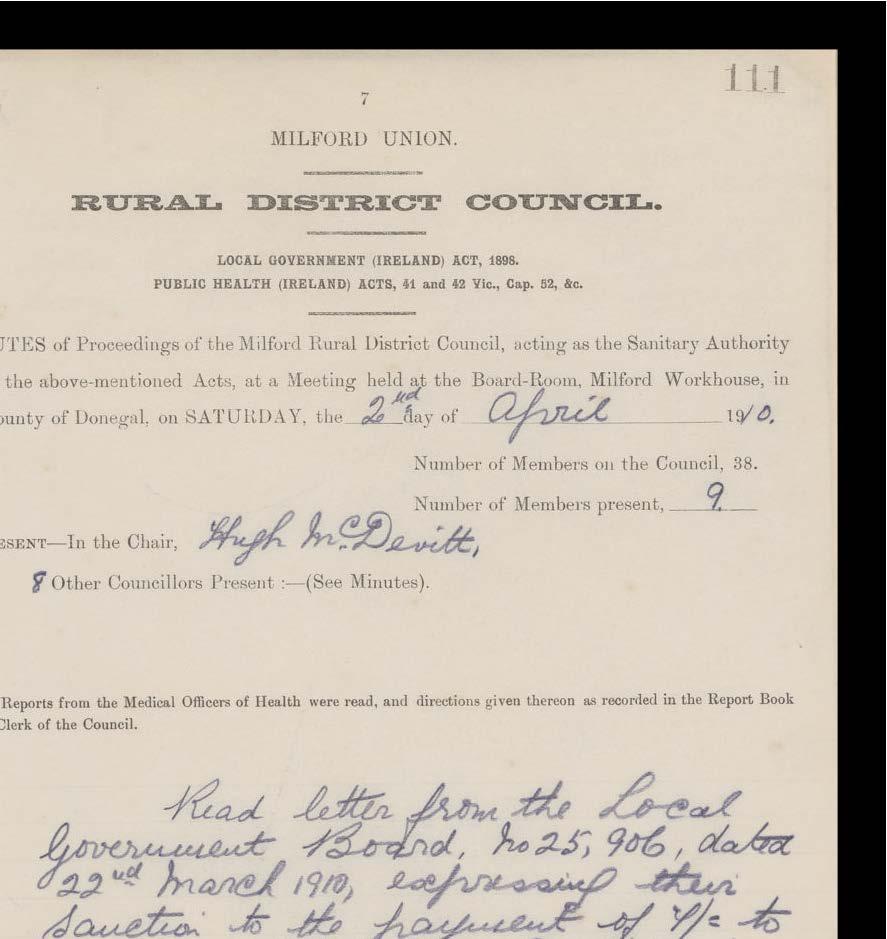 111
7
MILFORD UNION.
RURAL DISTRICT COUNCIL.
LOCAL GOVERNMENT (IRELAND) ACT, 1898.
PUBLIC HEALTH (IRELAND) ACTS, 41 and 42 Vic., Cap. 52, &c.
UTES of Proceedings of the Milford Rural District Council, acting as the Sanitary Authority
the above-mentioned Acts, at a Meeting held at the Board-Room, Milford Workhouse, in
ounty of Donegal, on SATURDAY, the 2nd day of April 1910.
Number of Members on the Council, 38.
Number of Members present, 9.
ESENT—In the Chair, Hugh McDevitt,
8 Other Councillors Present :—(See Minutes).
Reports from the Medical Officers of Health were read, and directions given thereon as recorded in the Report Book
Clerk of the Council.
Read letter from the Local
Government Board, No 25,906, dated
22nd March 1910, expressing their
Sanction to the payment of to